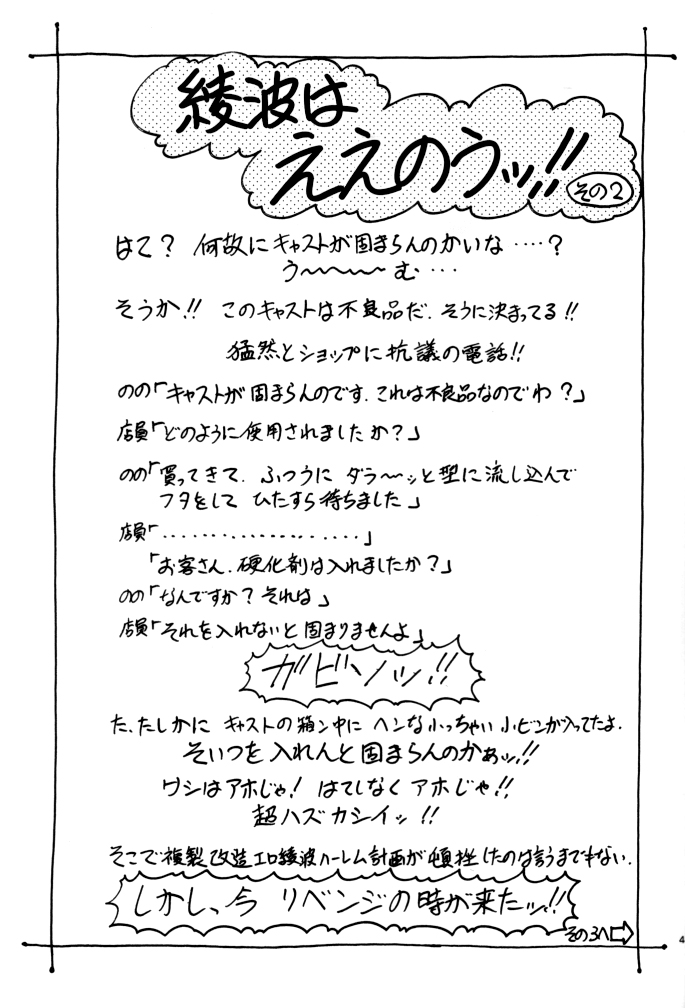 綾波は
ええのうッ!!
その2
はて? 何故にキャストが固まらんのかいな ‥‥?
う〜〜〜む‥‥
そうか!! このキャストは不良品だ. そうに決まってる!!
猛然とショップに抗議の電話!!
のの「キャストが固まらんのです. これは不良品なのでわ?」
店員「どのように使用されましたか?」
のの「買ってきて. ふつうに ダラ〜ッと型に流し込んで
フタをして ひたすら待ちました」
店員「‥‥‥‥‥‥‥‥‥‥」
「お客さん. 硬化剤は入れましたか?」
のの「なんですか? それは」
店員「それを入れないと固まりませんよ」
ガビンッ!!
た、たしかに キャストの箱ン中に ヘンな小っちゃい 小ビンが入ってたよ.
そいつを入れんと固まらんのかぁッ!!
ワシはアホじゃ! はてしなく アホじゃ!!
超ハズカシイッ!!
そこで複製改造エロ綾波ハーレム計画が頓挫したのは言うまでもない.
しかしっ、今 リベンジの時が来たッ!!
その3へ⇨
4